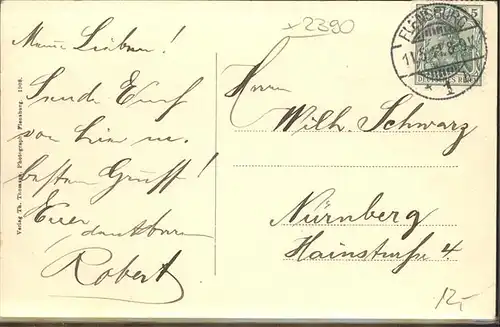 x 2390
Meine Lieben!
Sende Euch
von hier die
besten Grüße!
Euer
dankbarer
Robert
Verlag Th. Thomsen, Photograph, Flensburg. 1908.
FLENSBURG
5
DEUTSCHES REICH
* 1
Herrn
Wilh. Schwarz
Nürnberg
Hainstraße 4
12,-